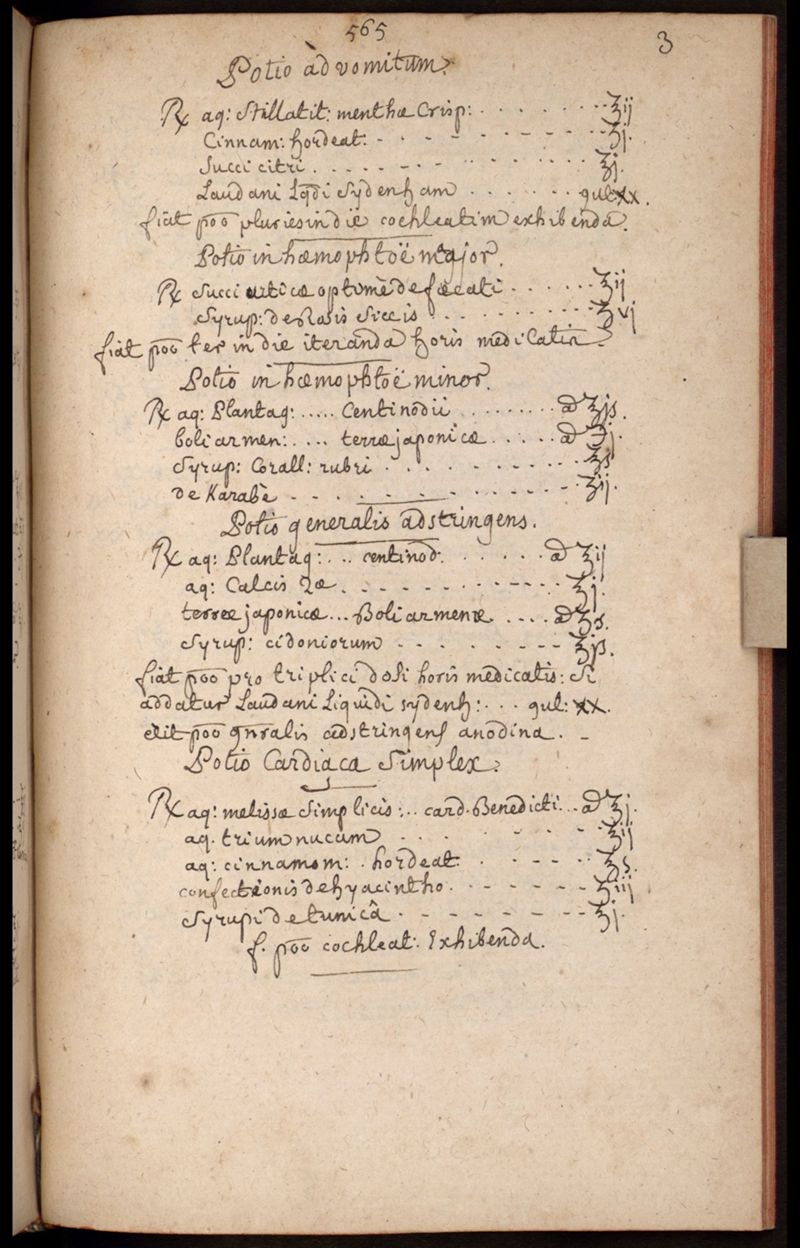 565
3
Potio ad vomitum.
℞ aq: Stillatit: menthæ Crisp: ʒij
Cinnam: hordeat: ʒj.
Succi citri ʒj.
Laudani Lqdi Sydenham gut xx.
fiat poõ pluries in die cochleatim exhibenda.
Potio in hæmophtoë major.
℞ Succi urticæ optimè defæcati ʒij
Syrup: de Rosis Siccis ʒvj
fiat poõ ter in die iteranda horis
Potio in hæmophtoë minor.
℞ aq: Plantag: ..... Centinodii
boli armen: .... terræ japonicæ ā ʒj.
Syrup: Corall: rubri
de Karabè ʒij.
Potio generalis adstringens.
℞ aq: Plantag: ... centinod. ā ʒij
aq: Calcis 2æ ʒj.
terræ japonicæ ... Boli armenæ
Syrup: cidoniorum
fiat poõ pro triplici dosi horis medicatis: Si
addatur Laudani Liquidi sydenh: ... gut: xx.
erit poõ gnralis adstringens anodina. -
Potio Cardiaca Simplex.
℞ aq: melissæ Simplicis: .. card. Benedicti .. ā ʒj.
aq. trium nucum ʒij
aq: cinnamom: . hordeat: ʒs.
confectionis de hyacintho ʒiij
Syrupi de tunicâ ʒj.
f. poõ cochleat: Exhibenda.